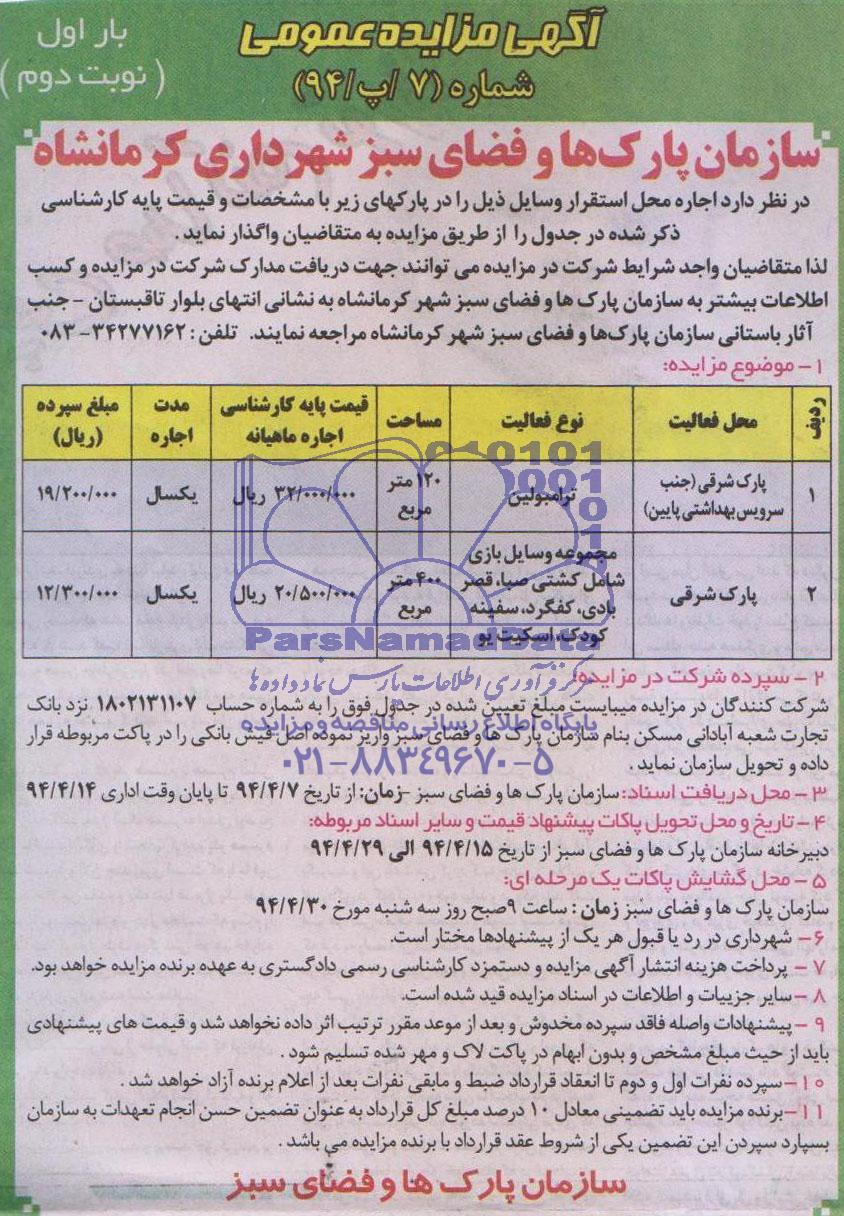 آگهی مزایده عمومی
شماره (۷/پ/۹۴)
بار اول
(نوبت دوم)
سازمان پارک‌ها و فضای سبز شهرداری کرمانشاه
در نظر دارد اجاره محل استقرار وسایل ذیل را در پارکهای زیر با مشخصات و قیمت پایه کارشناسی
ذکر شده در جدول را از طریق مزایده به متقاضیان واگذار نماید.
لذا متقاضیان واجد شرایط شرکت در مزایده می توانند جهت دریافت مدارک شرکت در مزایده و کسب
اطلاعات بیشتر به سازمان پارک ها و فضای سبز شهر کرمانشاه به نشانی انتهای بلوار تاقبستان - جنب
آثار باستانی سازمان پارک‌ها و فضای سبز شهر کرمانشاه مراجعه نمایند. تلفن: ۳۴۲۷۷۱۶۲-۰۸۳
۱- موضوع مزایده:
ردیف محل فعالیت نوع فعالیت مساحت قیمت پایه کارشناسی اجاره ماهیانه مدت اجاره مبلغ سپرده (ریال)
۱ پارک شرقی (جنب سرویس بهداشتی پایین) ترامبولین ۱۲۰ متر مربع ۳۲/۰۰۰/۰۰۰ ریال یکسال ۱۹/۲۰۰/۰۰۰
۲ پارک شرقی مجموعه وسایل بازی شامل کشتی صبا، قصر بادی، کفگرد، سفینه کودک، اسکیت پو ۴۰۰ متر مربع ۲۰/۵۰۰/۰۰۰ ریال یکسال ۱۲/۳۰۰/۰۰۰
ParsNamadData
مرکز فرآوری اطلاعات پارس نماد داده ها
پایگاه اطلاع رسانی مناقصه و مزایده
۰۲۱-۸۸۳۴۹۶۷۰-۵
۲- سپرده شرکت در مزایده:
شرکت کنندگان در مزایده میبایست مبلغ تعیین شده در جدول فوق را به شماره حساب ۱۸۰۲۱۳۱۱۰۷ نزد بانک
تجارت شعبه آبادانی مسکن بنام سازمان پارک ها و فضای سبز واریز نموده اصل فیش بانکی را در پاکت مربوطه قرار
داده و تحویل سازمان نماید.
۳- محل دریافت اسناد: سازمان پارک ها و فضای سبز -زمان: از تاریخ ۹۴/۴/۷ تا پایان وقت اداری ۹۴/۴/۱۴
۴- تاریخ و محل تحویل پاکات پیشنهاد قیمت و سایر اسناد مربوطه:
دبیرخانه سازمان پارک ها و فضای سبز از تاریخ ۹۴/۴/۱۵ الی ۹۴/۴/۲۹
۵- محل گشایش پاکات یک مرحله ای:
سازمان پارک ها و فضای سبز زمان: ساعت ۹ صبح روز سه شنبه مورخ ۹۴/۴/۳۰
۶- شهرداری در رد یا قبول هر یک از پیشنهادها مختار است.
۷- پرداخت هزینه انتشار آگهی مزایده و دستمزد کارشناسی رسمی دادگستری به عهده برنده مزایده خواهد بود.
۸- سایر جزییات و اطلاعات در اسناد مزایده قید شده است.
۹- پیشنهادات واصله فاقد سپرده مخدوش و بعد از موعد مقرر ترتیب اثر داده نخواهد شد و قیمت های پیشنهادی
باید از حیث مبلغ مشخص و بدون ابهام در پاکت لاک و مهر شده تسلیم شود.
۱۰- سپرده نفرات اول و دوم تا انعقاد قرارداد ضبط و مابقی نفرات بعد از اعلام برنده آزاد خواهد شد.
۱۱- برنده مزایده باید تضمینی معادل ۱۰ درصد مبلغ کل قرارداد به عنوان تضمین حسن انجام تعهدات به سازمان
بسپارد سپردن این تضمین یکی از شروط عقد قرارداد با برنده مزایده می باشد.
سازمان پارک ها و فضای سبز